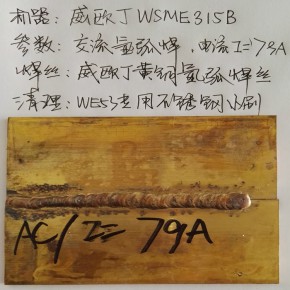 机器：威欧丁WSME315B
参数：交流氩弧焊，电流I=79A
焊丝：威欧丁黄铜氩弧焊丝
清理：WE53专用不锈钢小刷
AC/I=79A